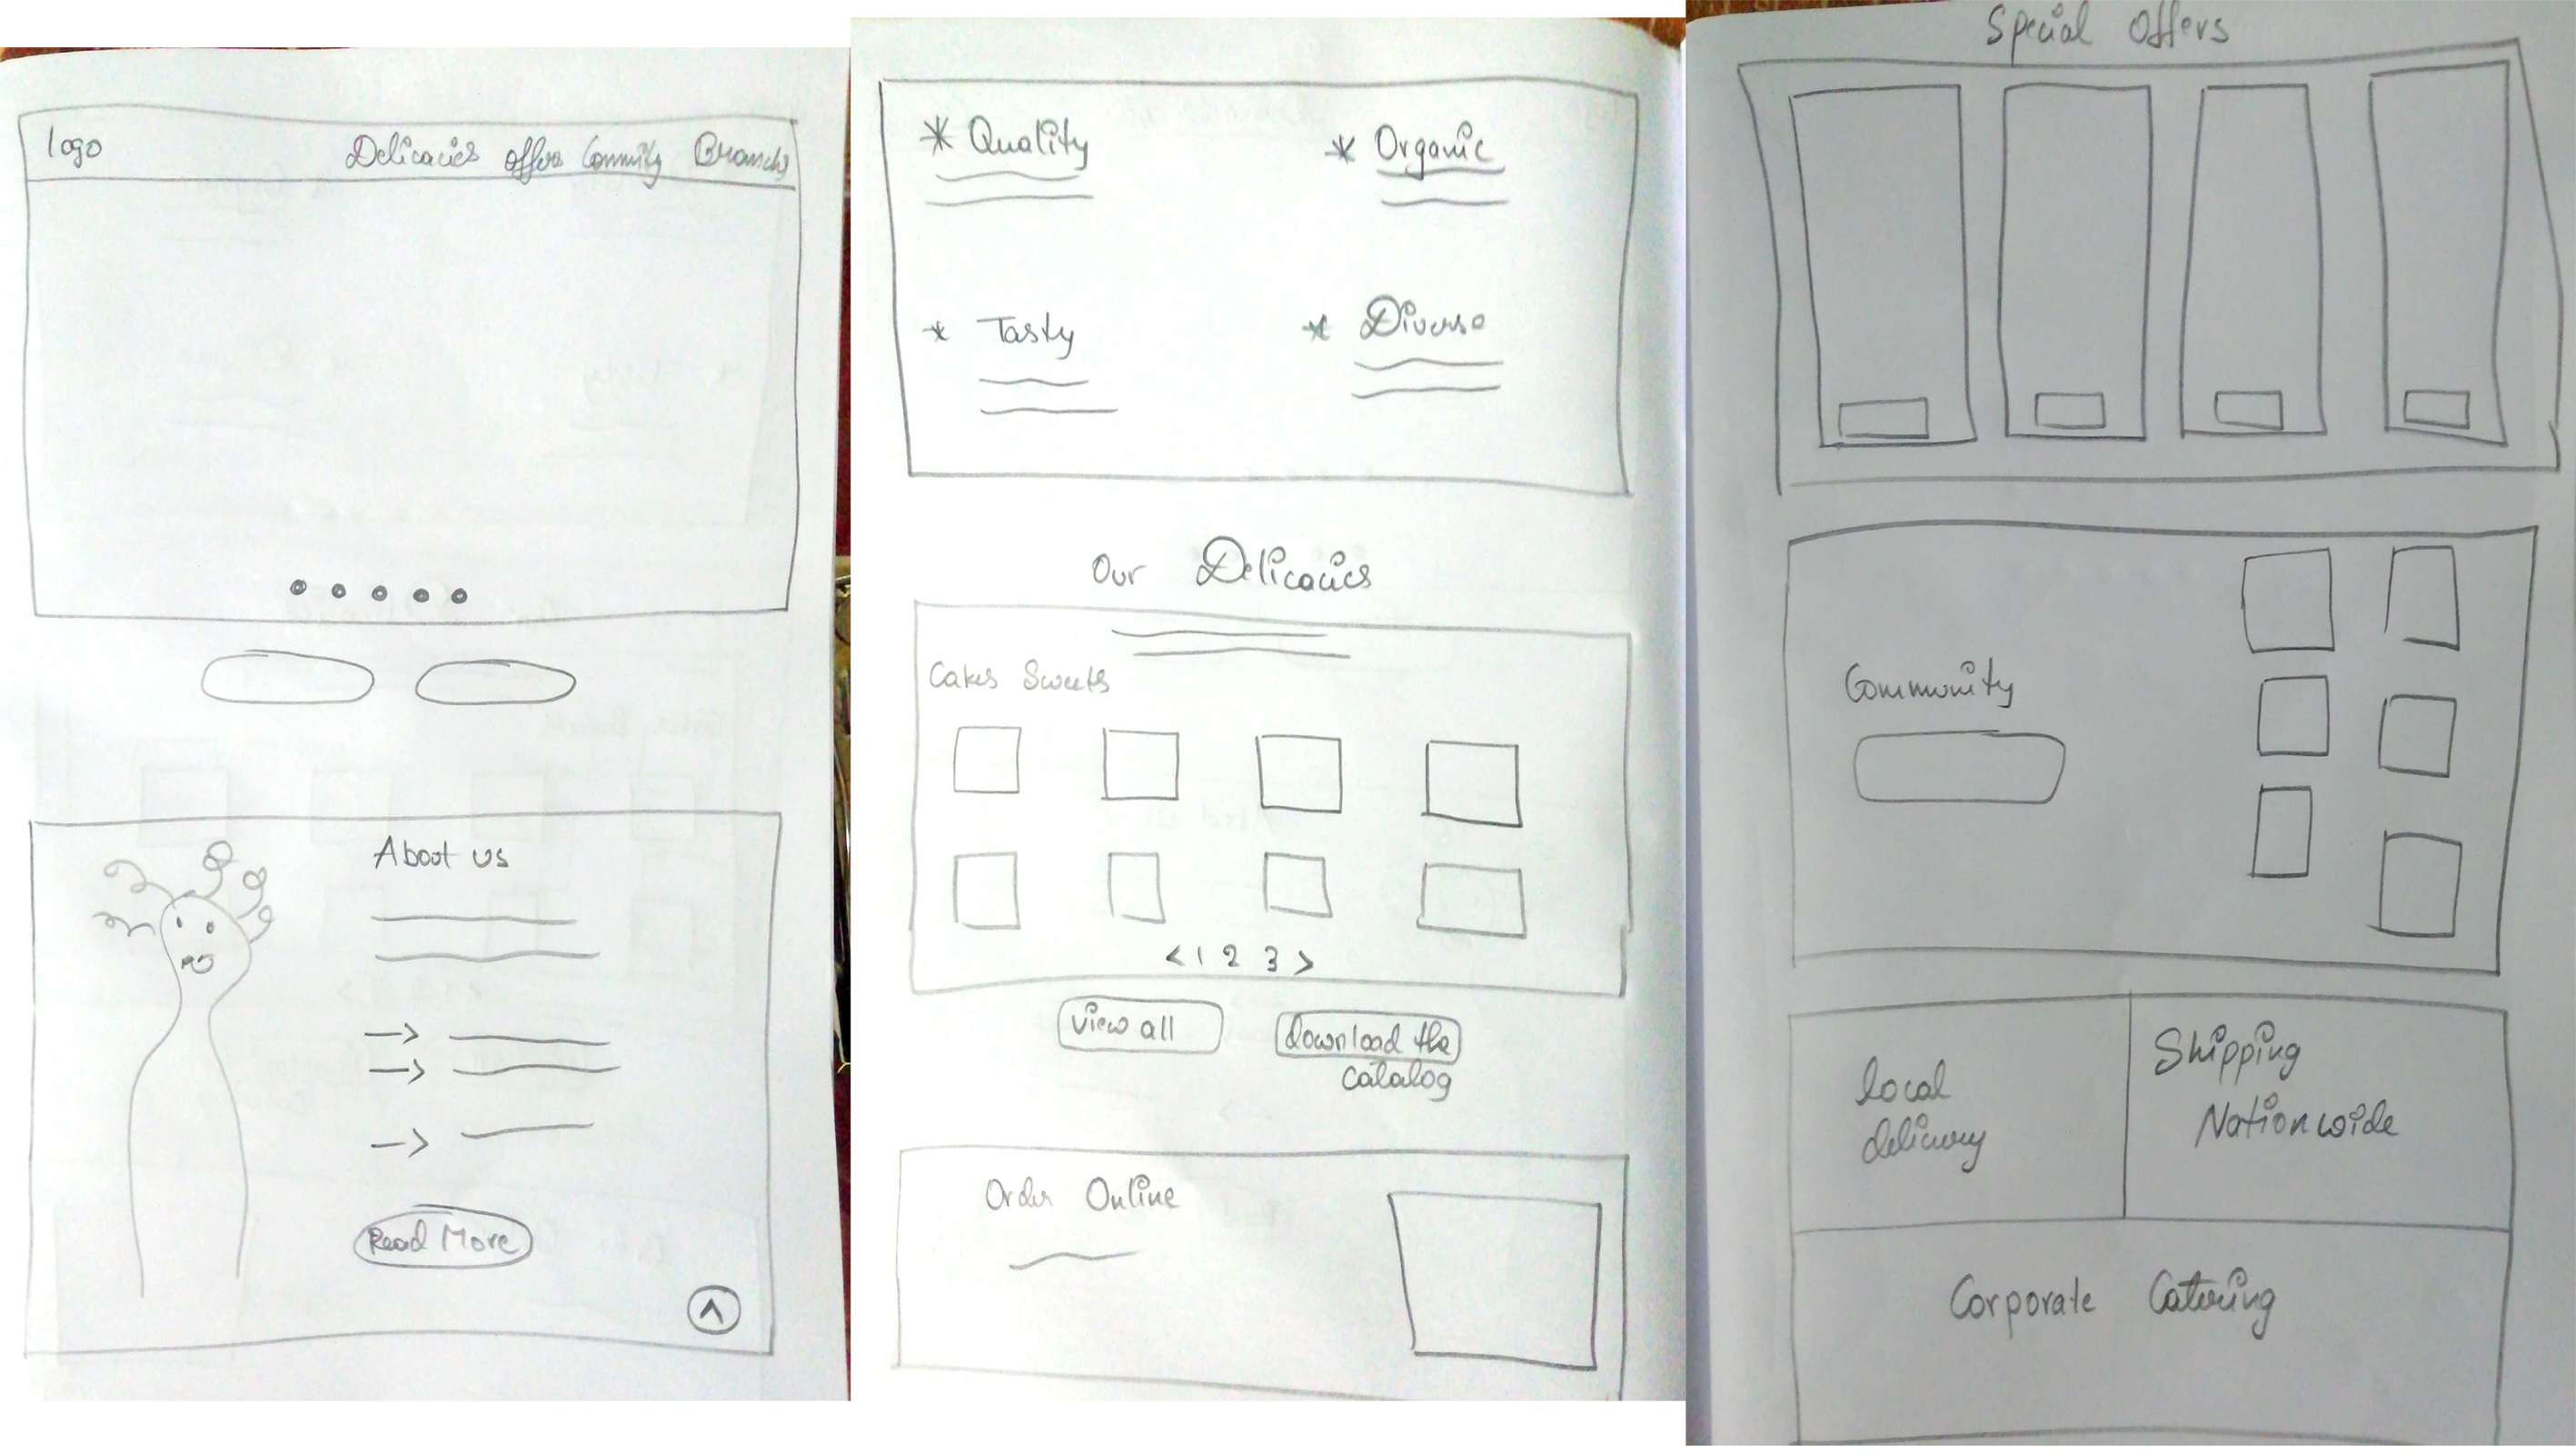 logo
Delicacies offers Community Branchs
About us
Read More
^
* Quality
* Organic
* Tasty
* Diverse
Our Delicacies
Cakes Sweets
< 1 2 3 >
View all
download the
catalog
Order Online
Special Offers
Community
local
delivery
Shipping
Nationwide
Corporate Catering